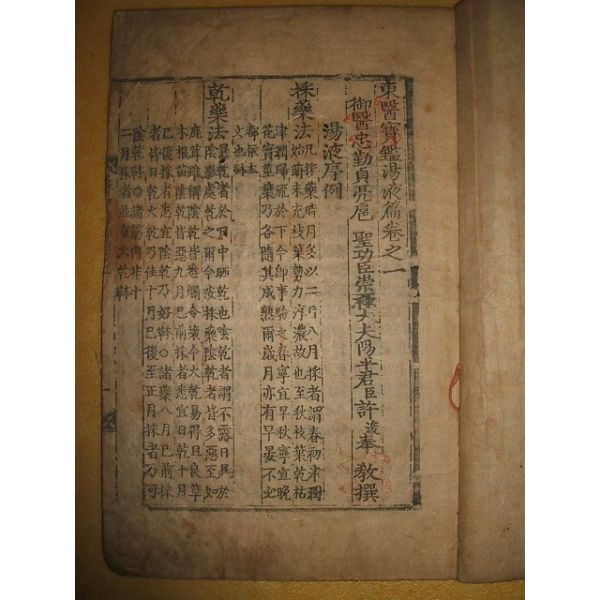 東醫寶鑑湯液篇卷之一
御醫忠勤貞亮扈 聖功臣崇祿大夫陽平君臣許浚奉 敎撰
湯液序例
採藥法凡採藥時月多以二月八月採者謂春初津潤
始萌未充枝葉勢力淳濃故也至秋枝葉乾枯
津潤歸流於下今卽事驗之春寧宜早秋寧宜晚
花實莖葉乃各隨其成熟爾歲月亦有早晏不必
都依本
文也本草
乾藥法暴乾者於日中晒乾也陰乾者謂不露日暴於
陰影處乾之爾今按採藥陰乾者皆多惡至如
鹿茸雖稱陰乾皆悉爛令壞今火乾易得且良草
木根苗陰乾皆惡九月已前採者悉宜日乾十月
已後採者悉宜陰乾乃好本草○諸藥八月已前採
者皆日乾火乾乃佳十月已後至正月採者乃可
陰乾本草○諸筋肉非十
二月採者並宜火乾本草